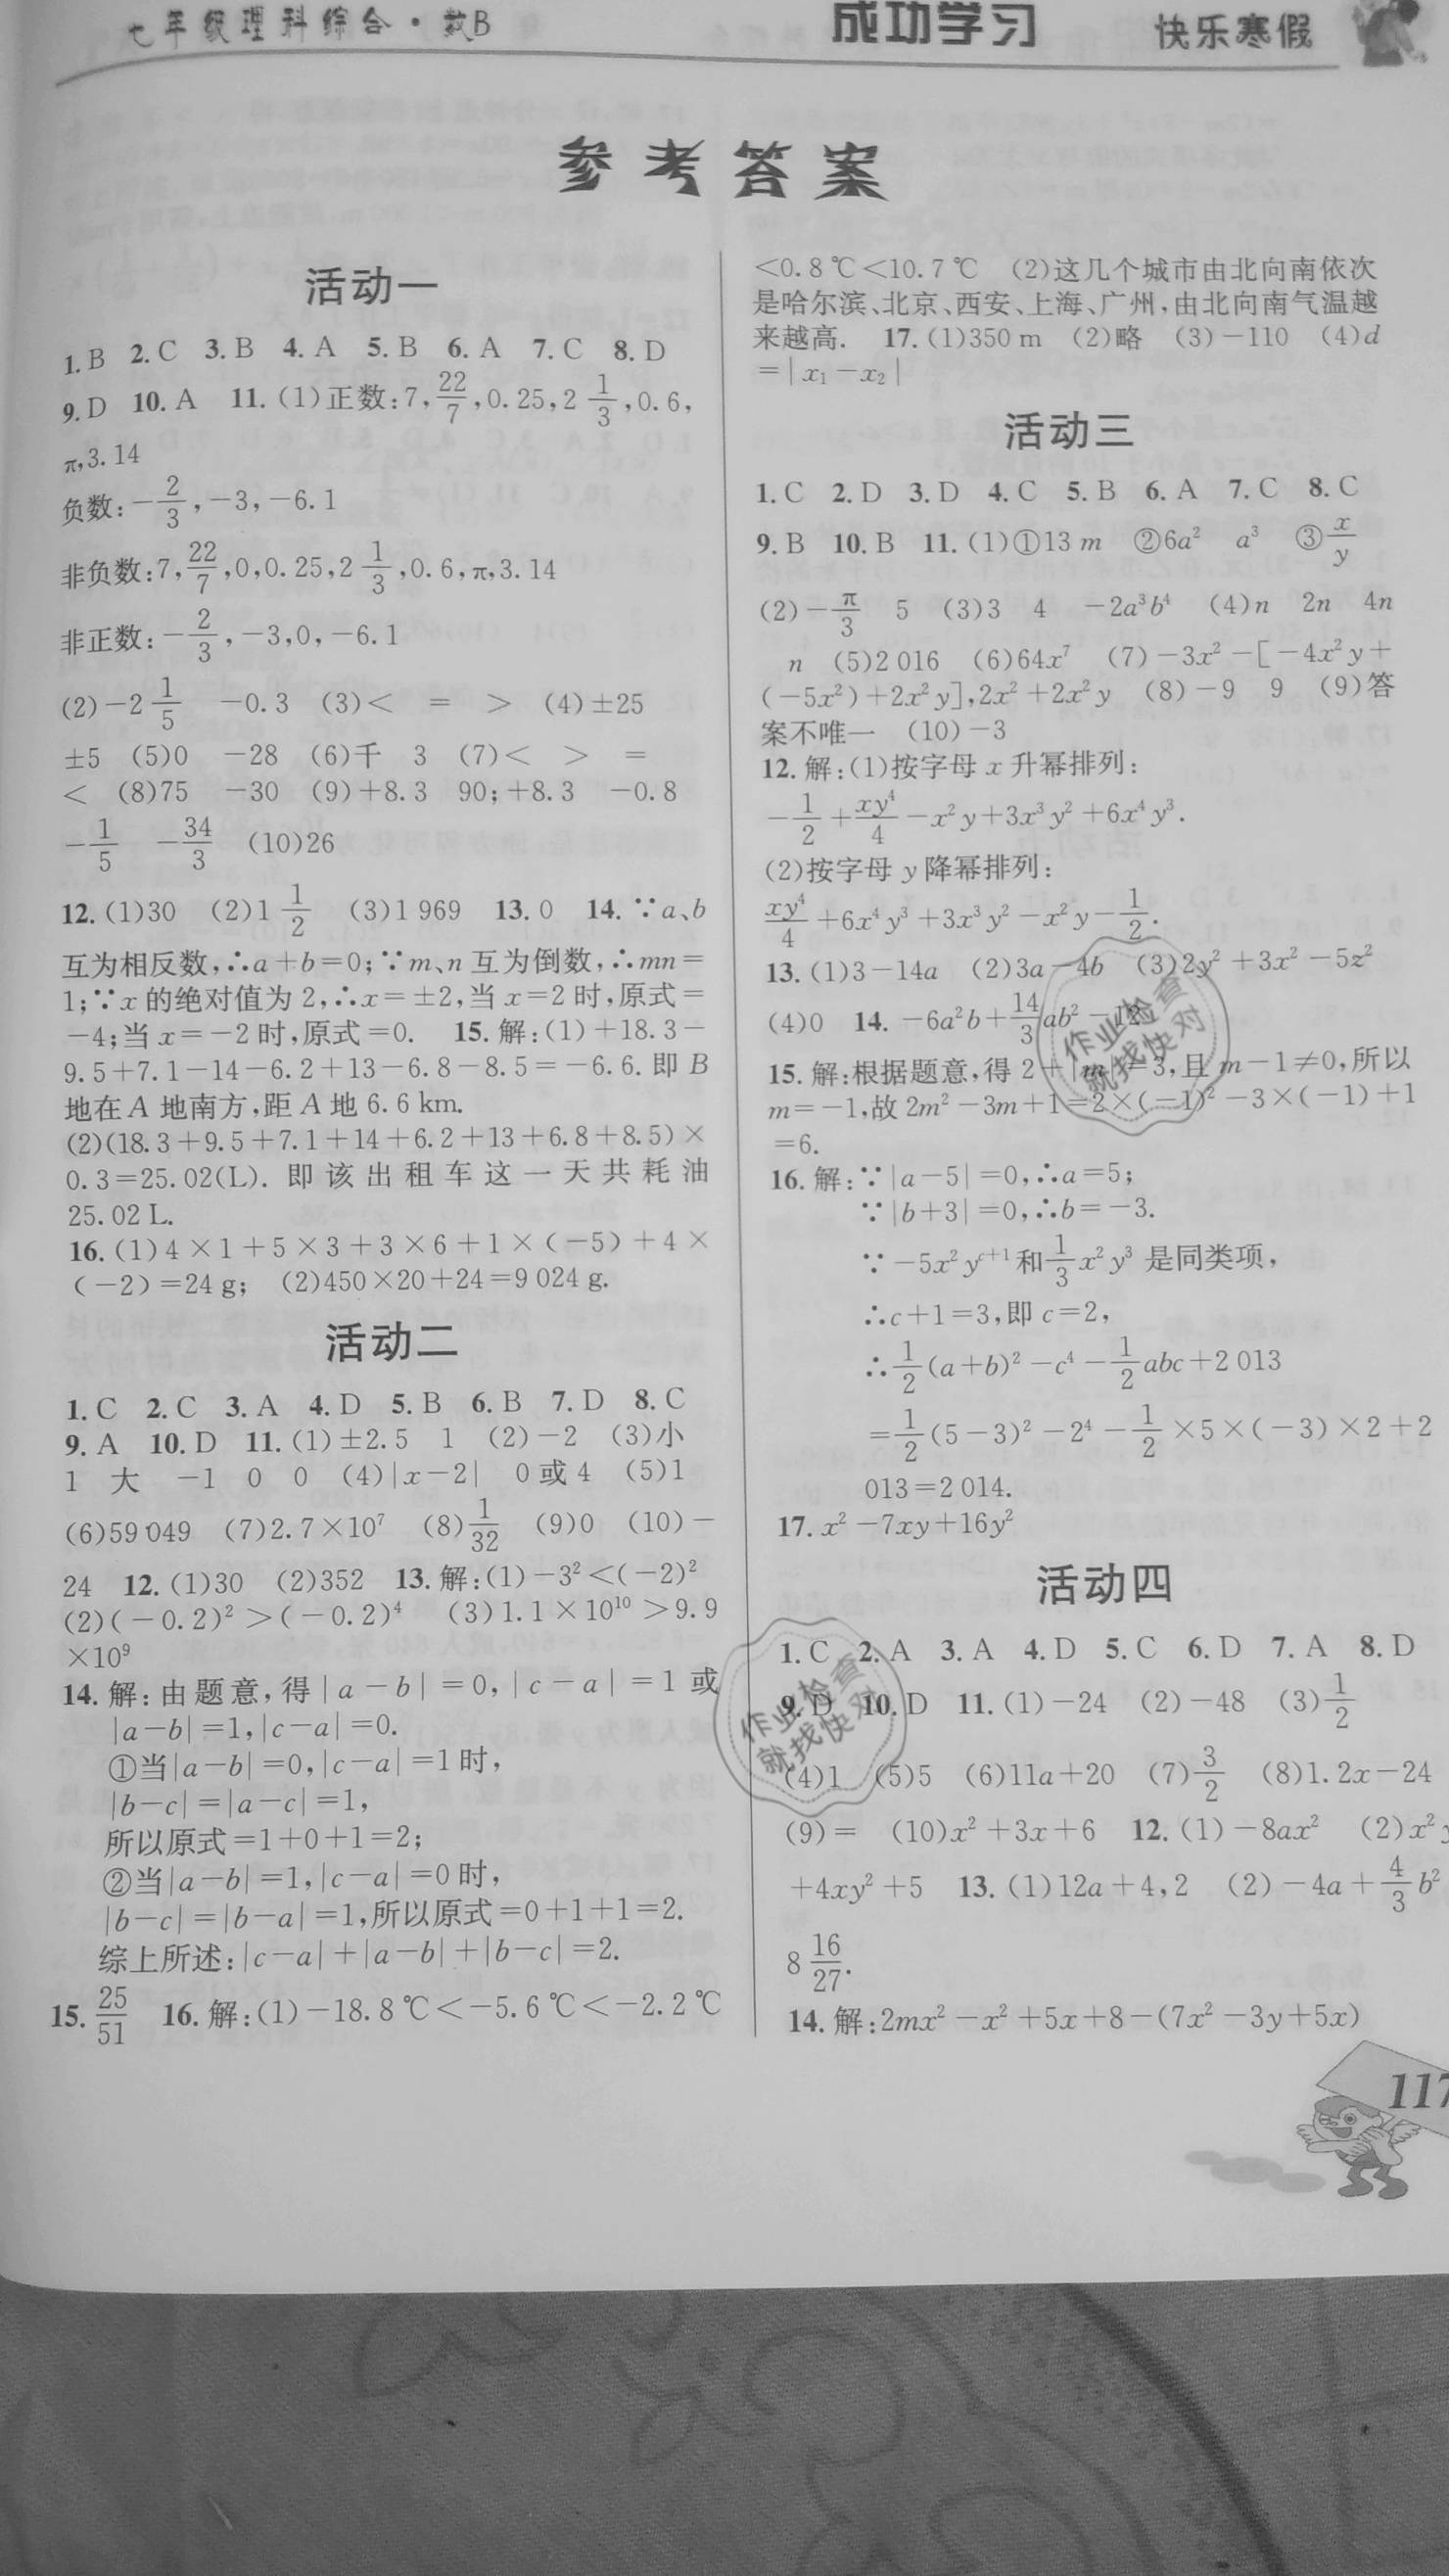 七年级理科综合·数B 成功学习 快乐寒假
参考答案
活动一
1.B 2.C 3.B 4.A 5.B 6.A 7.C 8.D
9.D 10.A 11.(1)正数:7,22/7,0.25,2 1/3,0.6,
π,3.14
负数:-2/3,-3,-6.1
非负数:7,22/7,0,0.25,2 1/3,0.6,π,3.14
非正数:-2/3,-3,0,-6.1
(2)-2 1/5 -0.3 (3)< = > (4)±25
±5 (5)0 -28 (6)千 3 (7)< > =
< (8)75 -30 (9)+8.3 90;+8.3 -0.8
-1/5 -34/3 (10)26
12.(1)30 (2)1 1/2 (3)1 969 13.0 14.∵a、b
互为相反数,∴a+b=0;∵m、n互为倒数,∴mn=
1;∵x的绝对值为2,∴x=±2,当x=2时,原式=
-4;当x=-2时,原式=0. 15.解:(1)+18.3-
9.5+7.1-14-6.2+13-6.8-8.5=-6.6.即B
地在A地南方,距A地6.6 km.
(2)(18.3+9.5+7.1+14+6.2+13+6.8+8.5)×
0.3=25.02(L). 即该出租车这一天共耗油
25.02 L.
16.(1)4×1+5×3+3×6+1×(-5)+4×
(-2)=24 g; (2)450×20+24=9 024 g.
活动二
1.C 2.C 3.A 4.D 5.B 6.B 7.D 8.C
9.A 10.D 11.(1)±2.5 1 (2)-2 (3)小
1 大 -1 0 0 (4)|x-2| 0或4 (5)1
(6)59 049 (7)2.7×10⁷ (8)1/32 (9)0 (10)-
24 12.(1)30 (2)352 13.解:(1)-3²<(-2)²
(2)(-0.2)²>(-0.2)⁴ (3)1.1×10¹⁰>9.9
×10⁹
14.解:由题意,得|a-b|=0,|c-a|=1或
|a-b|=1,|c-a|=0.
①当|a-b|=0,|c-a|=1时,
|b-c|=|a-c|=1,
所以原式=1+0+1=2;
②当|a-b|=1,|c-a|=0时,
|b-c|=|b-a|=1,所以原式=0+1+1=2.
综上所述:|c-a|+|a-b|+|b-c|=2.
15.25/51 16.解:(1)-18.8℃<-5.6℃<-2.2℃
<0.8℃<10.7℃ (2)这几个城市由北向南依次
是哈尔滨、北京、西安、上海、广州,由北向南气温越
来越高. 17.(1)350 m (2)略 (3)-110 (4)d
=|x₁-x₂|
活动三
1.C 2.D 3.D 4.C 5.B 6.A 7.C 8.C
9.B 10.B 11.(1)①13 m ②6a² a³ ③x/y
(2)-π/3 5 (3)3 4 -2a³b⁴ (4)n 2n 4n
n (5)2 016 (6)64x⁷ (7)-3x²-[-4x²y+
(-5x²)+2x²y],2x²+2x²y (8)-9 9 (9)答
案不唯一 (10)-3
12.解:(1)按字母x升幂排列:
-1/2+xy⁴/4-x²y+3x³y²+6x⁴y³.
(2)按字母y降幂排列:
xy⁴/4+6x⁴y³+3x³y²-x²y-1/2.
13.(1)3-14a (2)3a-4b (3)2y²+3x²-5z²
(4)0 14.-6a²b+14/3ab²-
15.解:根据题意,得2+|m|=3,且m-1≠0,所以
m=-1,故2m²-3m+1=2×(-1)²-3×(-1)+1
=6.
16.解:∵|a-5|=0,∴a=5;
∵|b+3|=0,∴b=-3.
∵-5x²yᶜ⁺¹和1/3x²y³是同类项,
∴c+1=3,即c=2,
∴1/2(a+b)²-c⁴-1/2abc+2 013
=1/2(5-3)²-2⁴-1/2×5×(-3)×2+2
013=2 014.
17.x²-7xy+16y²
活动四
1.C 2.A 3.A 4.D 5.C 6.D 7.A 8.D
9.D 10.D 11.(1)-24 (2)-48 (3)1/2
(4)1 (5)5 (6)11a+20 (7)3/2 (8)1.2x-24
(9)= (10)x²+3x+6 12.(1)-8ax² (2)x²y
+4xy²+5 13.(1)12a+4,2 (2)-4a+4/3b²
8 16/27.
14.解:2mx²-x²+5x+8-(7x²-3y+5x)
117
作业检查
就找快对
作业检查
就找快对